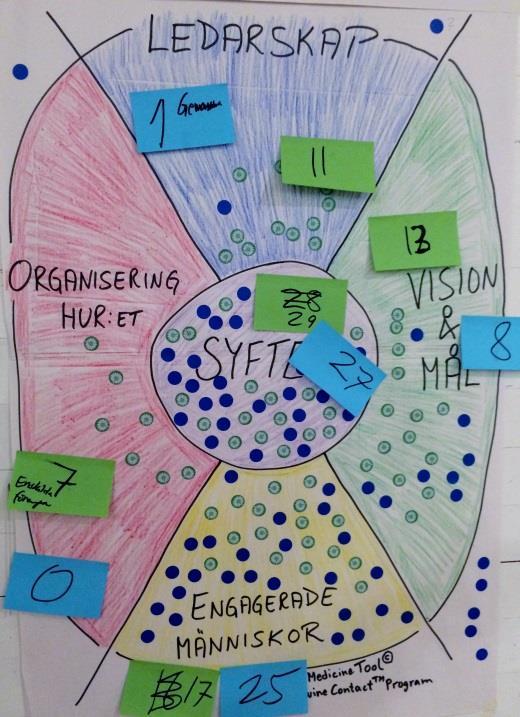 LEDARSKAP
1
11
13
ORGANISERING
HUR:ET
VISION
&
MÅL
8
28
29
SYFTE
27
7
Enskilda
0
ENGAGERADE
MÄNNISKOR
17
25
Medicine Tool©
uine Contact™ Program